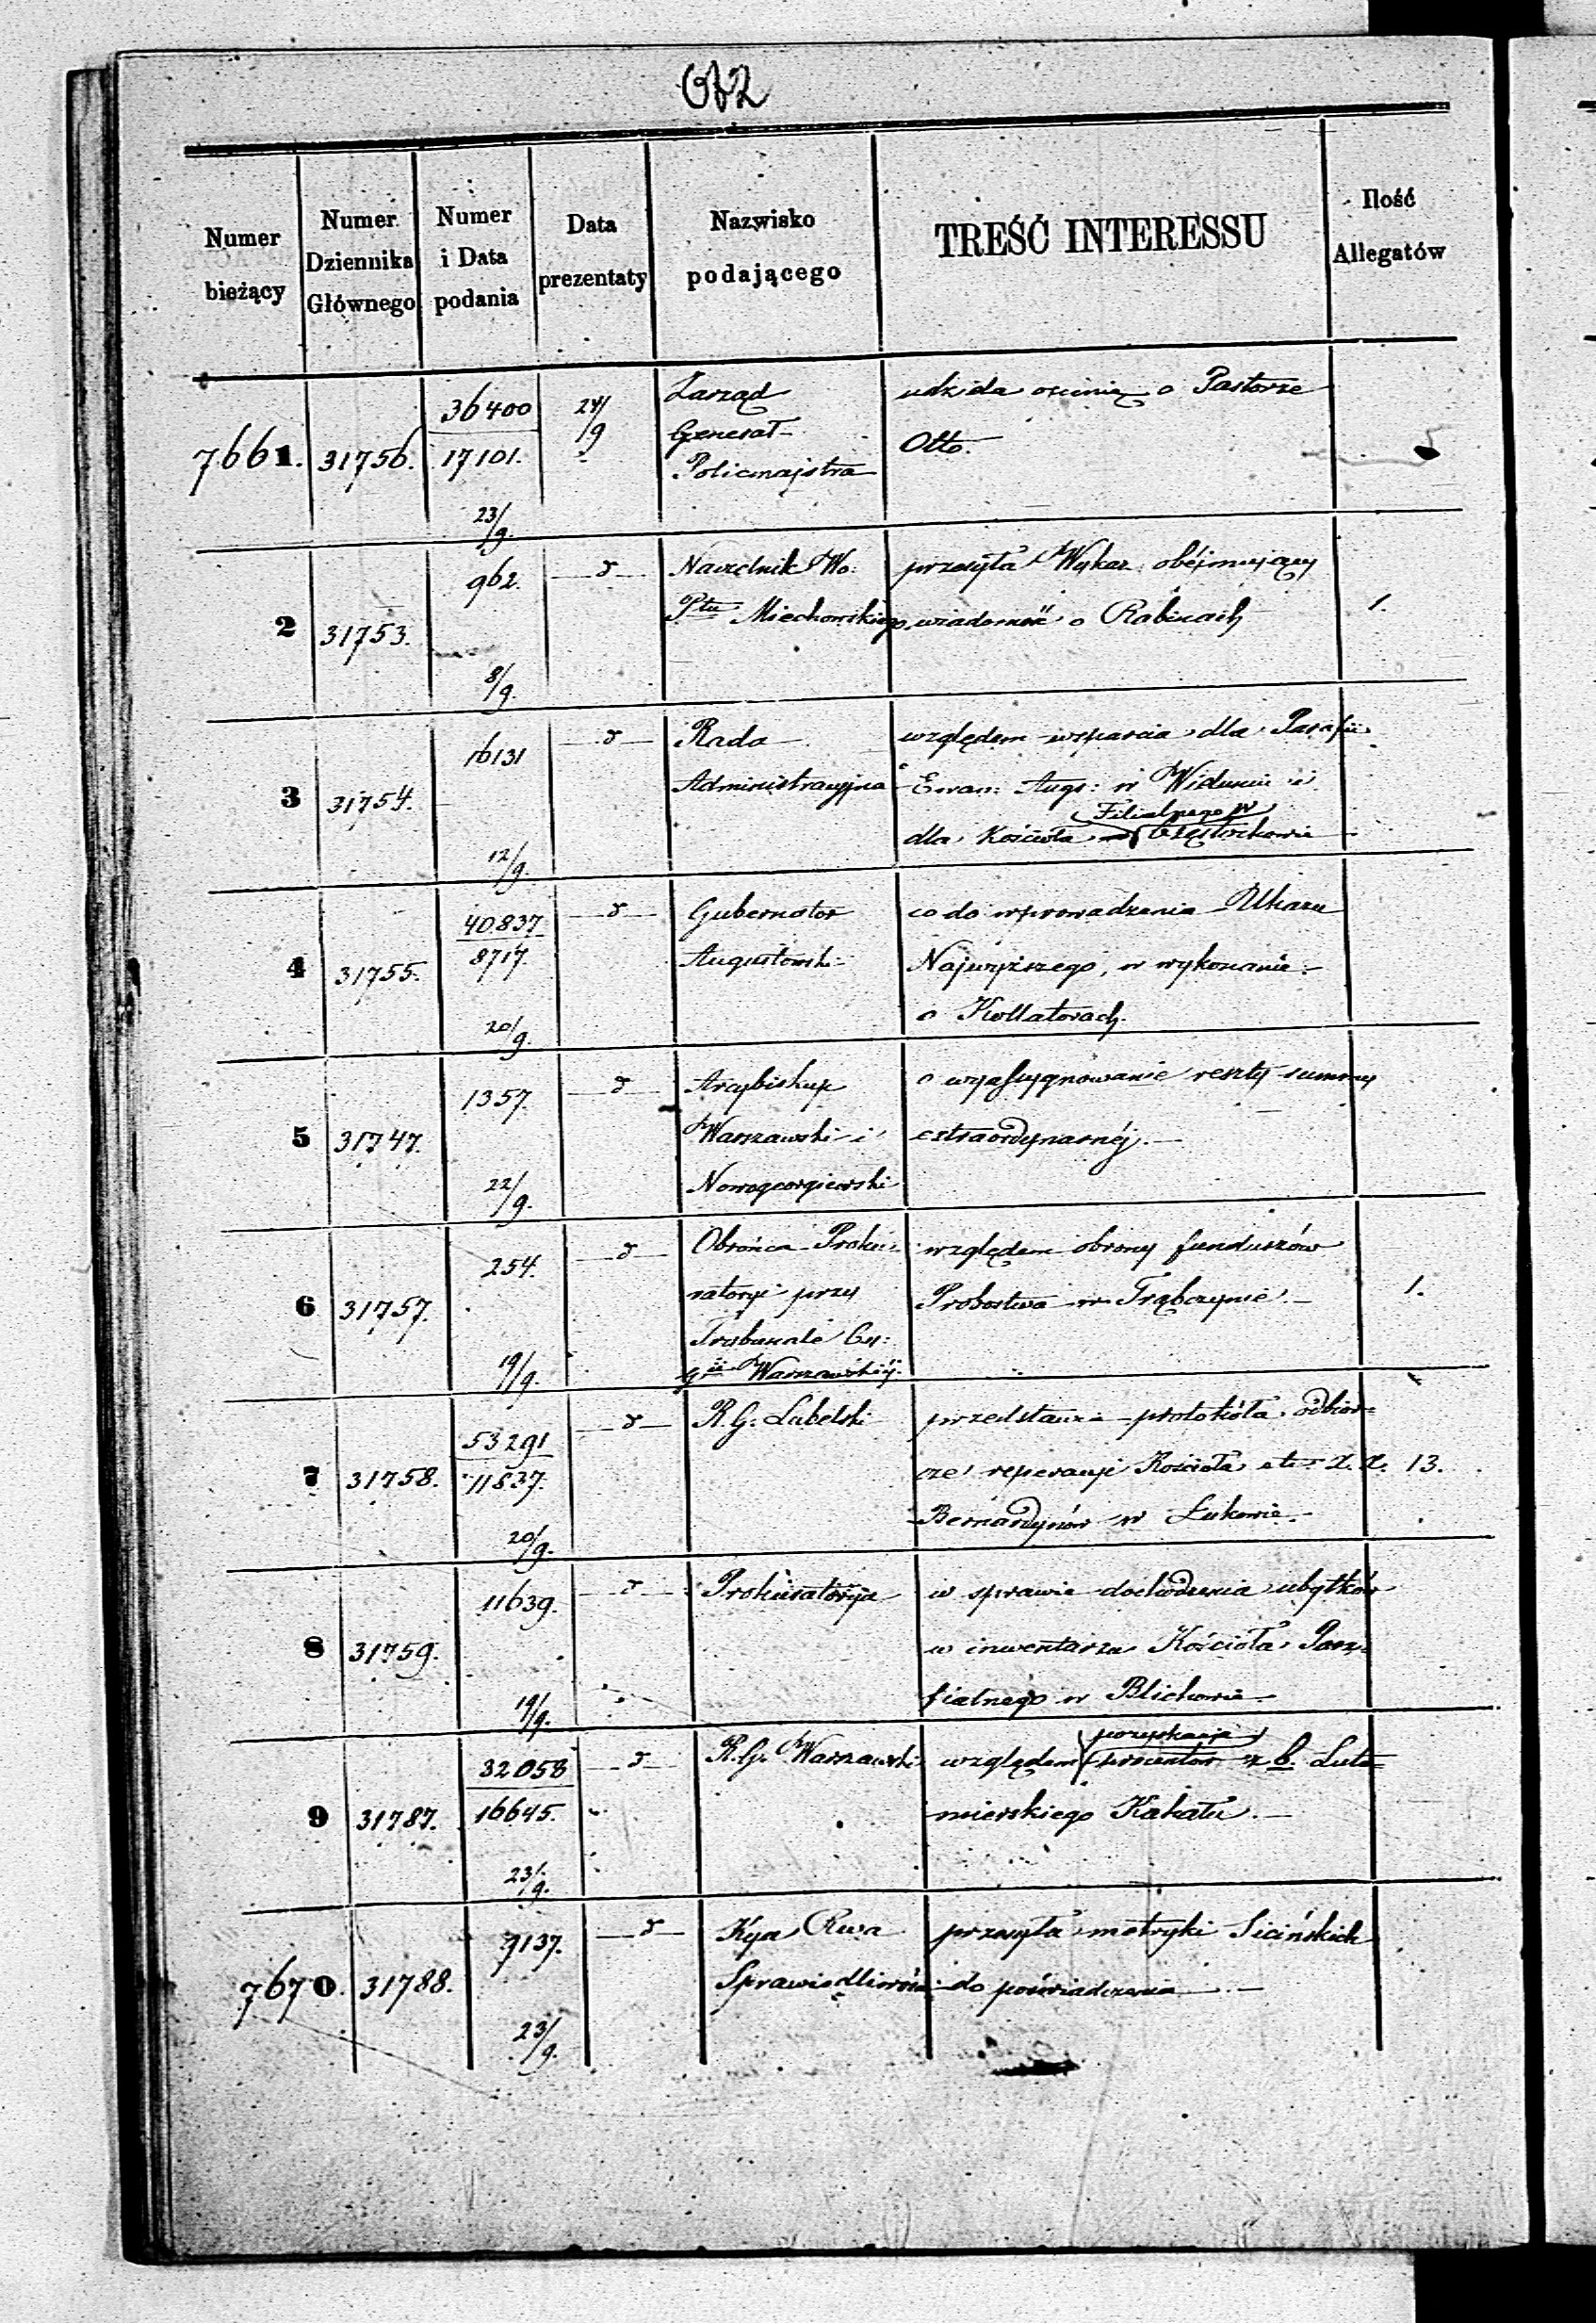 Numer bieżący
Numer Dziennika Głównego
Numer i Data podania
Data prezentaty
Nazwisko podającego
TREŚĆ INTERESSU
Ilość Allegatów
7661. 31756. 36400 24/9 Zarząd udziela ocenię o Pastorze
17101. Generał- Otto.
23/9. Policmajstra
2 31753. 962. d Naczelnik Wo: przesyła Wykaz obéjmujący
8/9. Ptu Miechowskiego, wiadomość o Rabinach 1.
3 31754. 16131 d Rada względem wsparcia dla Parafii
Administracyjna Ewan: Augs: w Wieluniu i
Filialnego w
12/9. dla Kościoła Częstochowie
4 31755. 40.837 d Gubernator co do wprowadzenia Ukazu
8717. Augustowski Najwyższego, w wykonanie
20/9. o Kollatorach.
5 31747. 1357. d Arcybiskup o wyassygnowanie reszty summy
Warszawski i extraordynarnéj.
22/9. Nowogeorgiewski
6 31757. 254. d Obrońca Proku: względem obrony funduszów
ratoryi przy Probostwa w Trąbczynie. 1.
Trybunale Cy:
19/9. Gii Warszawskiéj.
7 31758. 53291 d R. G. Lubelski przedstawia protokóła odbior=
11837. cze reperacyi Kościoła etc X. X. 13.
20/9. Bernardynów w Łukowie.
8 31759. 11639. d Prokuratorya w sprawie dochodzenia ubytków
w inwentarzu Kościoła Para=
19/9. fialnego w Blichowie
pozyskania
9 31787. 32058 d R. G. Warszawski względem procentów z b. Luto=
16645. mierskiego Kahału.
23/9.
7670. 31788. 9137. d Kya Rwa przesyła metryki Sicińskich
Sprawiedliwości do poświadczenia
23/9.